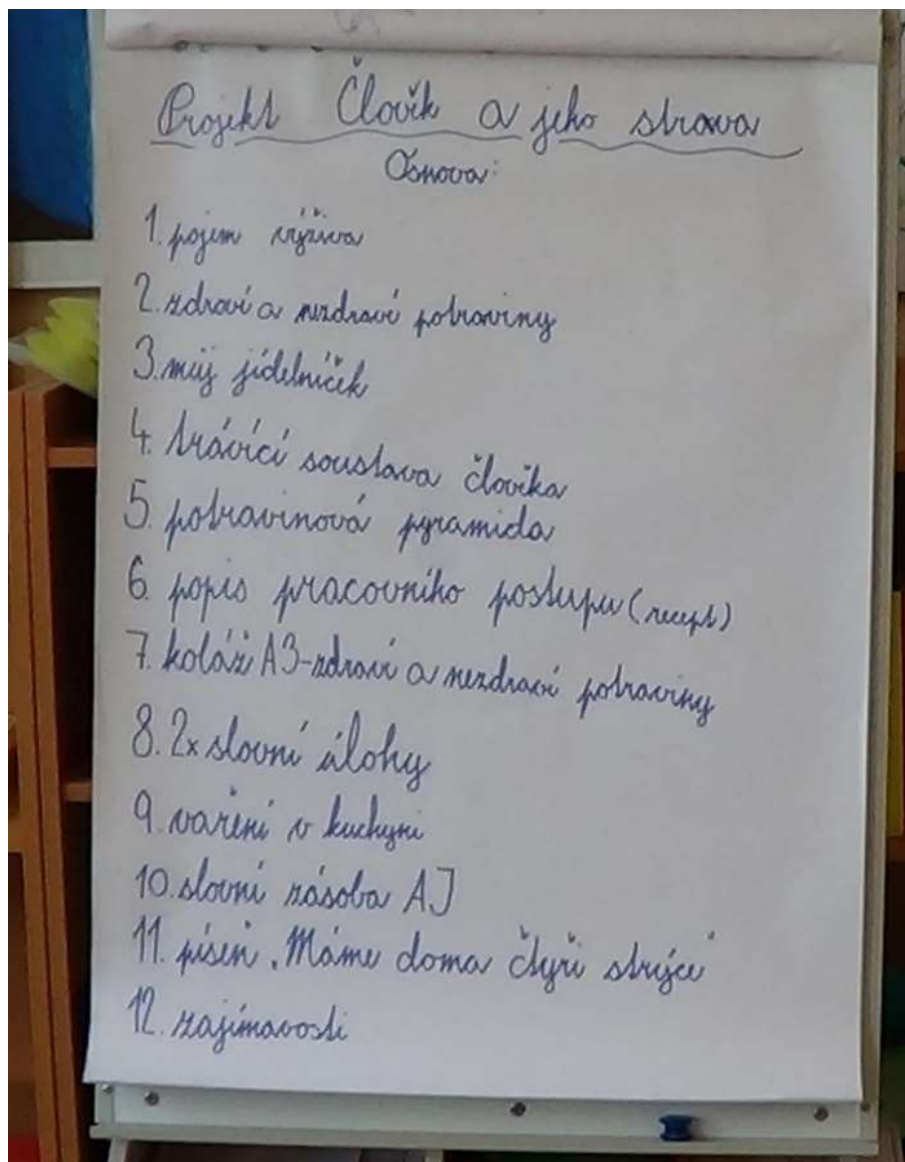 Projekt Člověk a jeho strava
Osnova:
1. pojem výživa
2. zdraví a nezdraví potraviny
3. můj jídelníček
4. trávící soustava člověka
5. potravinová pyramida
6. popis pracovního postupu (recept)
7. koláž A3-zdraví a nezdraví potraviny
8. 2x slovní úlohy
9. vaření v kuchyni
10. slovní zásoba AJ
11. píseň „Máme doma čtyři strýce"
12. zajímavosti